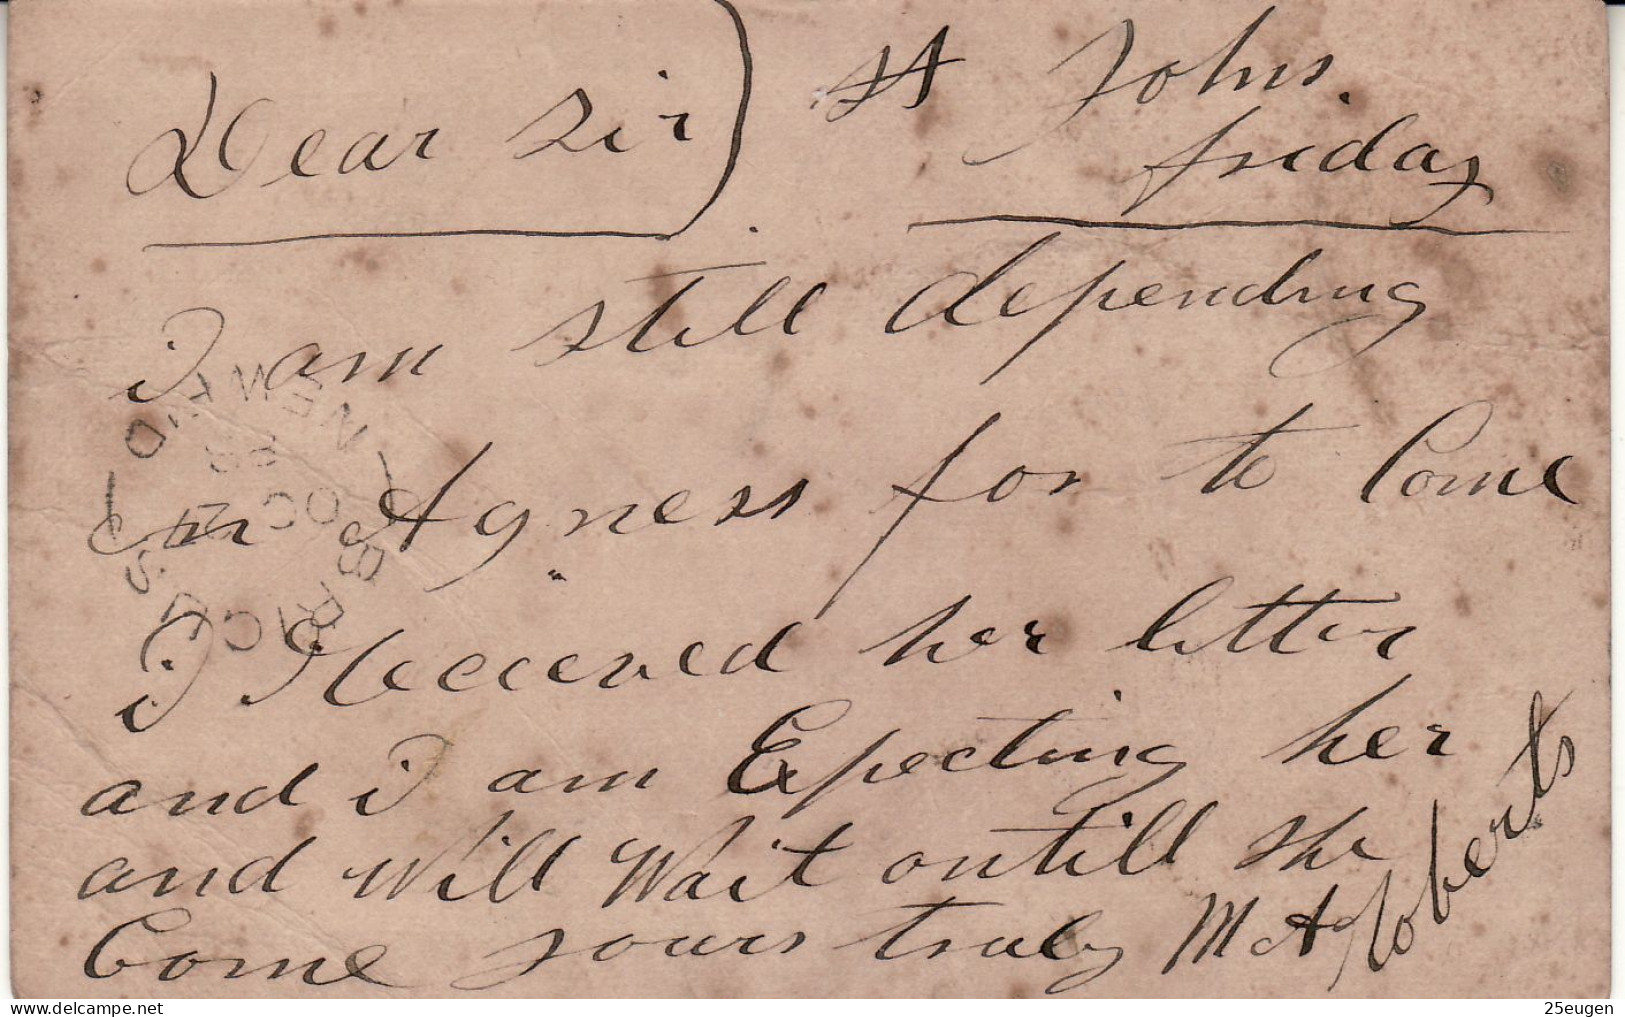 Dear Sir) St Johns.
friday
I am still depending
on Agness for to Come
I Received her letter
and I am Expecting her
and Will Wait ontill she
Come yours truly M A Roberts
BRIGUS
NEWF'LND
OC
88
25eugen